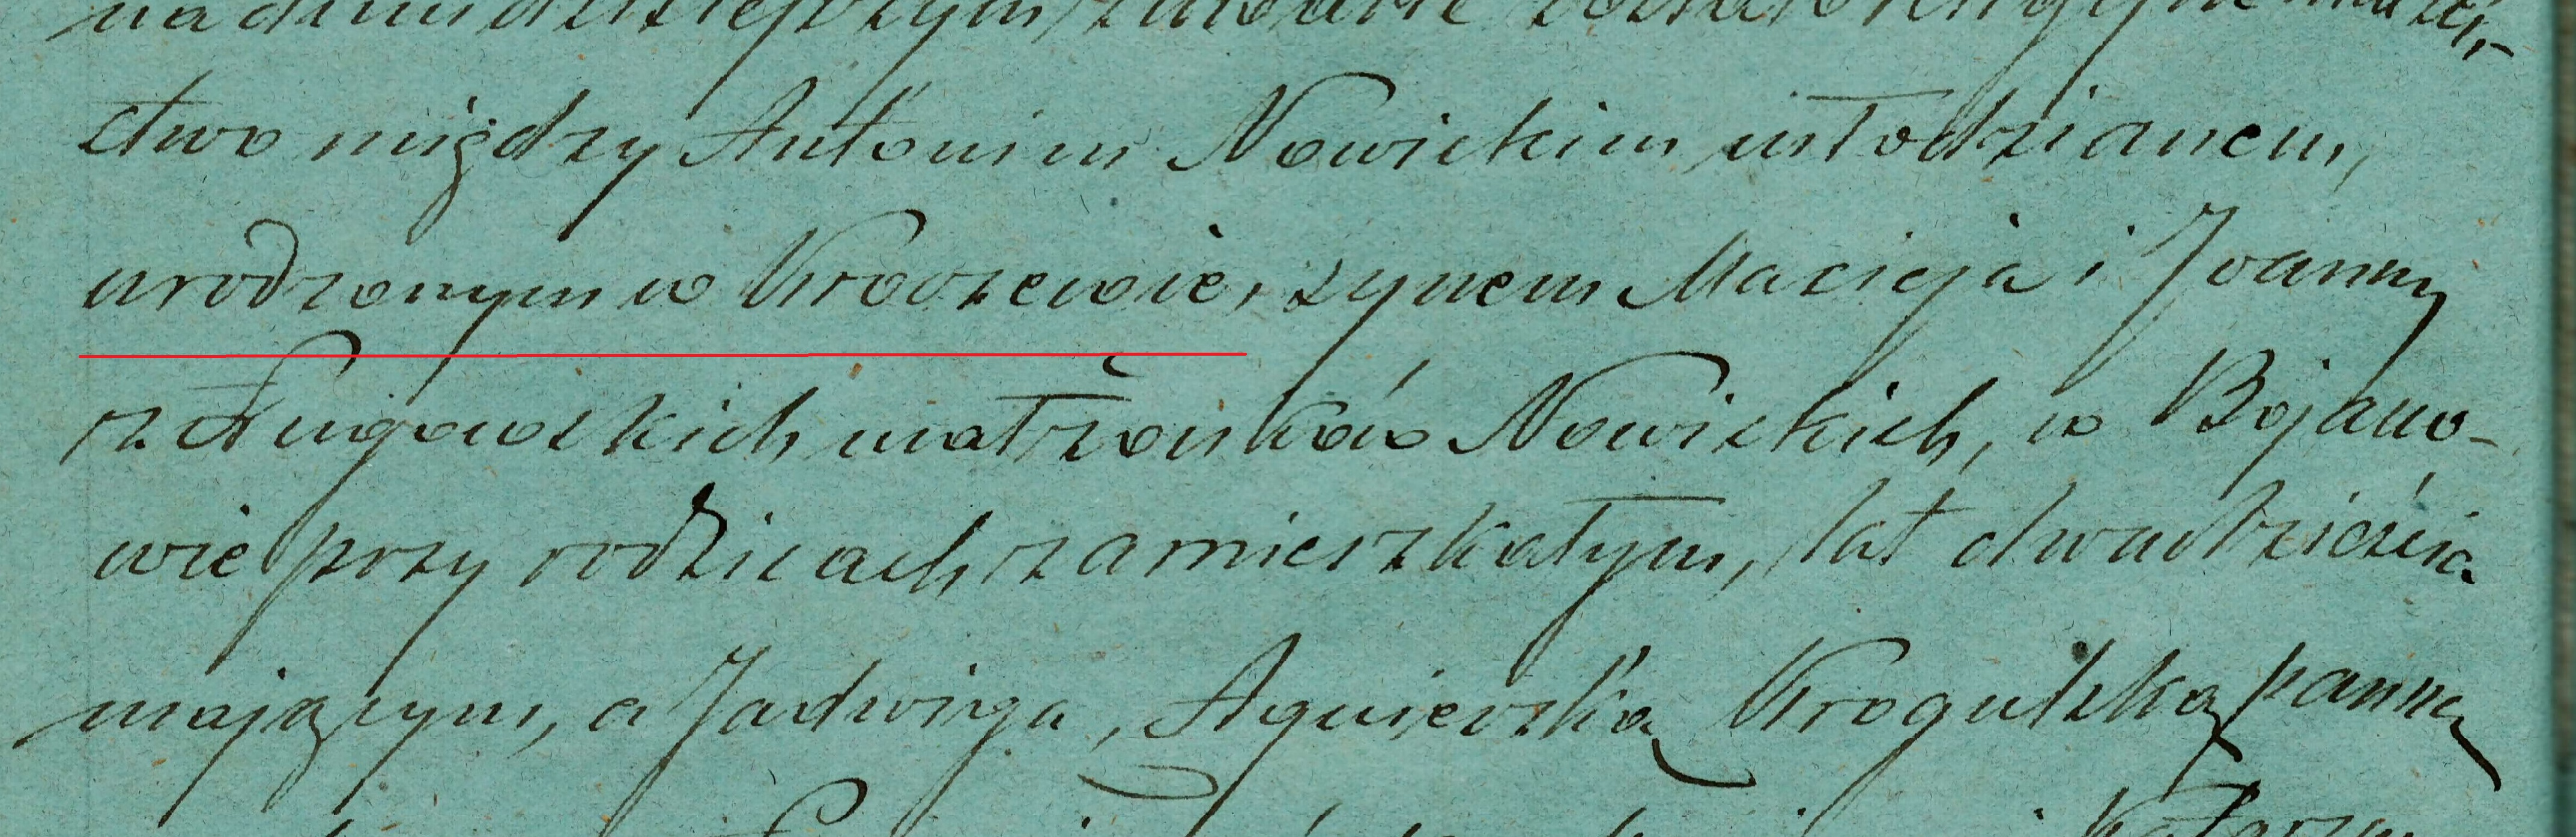 na dniu dzisiejszym, zawarte zostało religijne małżeń-
stwo między Antonim Nowickim młodzianem,
urodzonym w Kroczewie, synem Macieja i Joanny
z Długowskich małżonków Nowickich, w Bojano-
wie przy rodzicach zamieszkałym, lat dwadzieścia
mającym, a Jadwigą, Agnieszką Krogulską panną